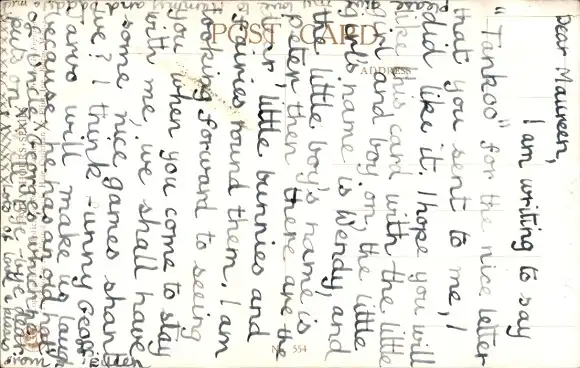 Dear Maureen,
I am writing to say
"Tankoo" for the nice letter
that you sent to me, I
did like it. I hope you will
like this card with the little
girl and boy on the little
girl's name is Wendy, and
the little boy's name is
Peter then there are the
dear little bunnies and
fairies round them. I am
looking forward to seeing
you when you come to stay
with me, we shall have
some nice games shan't
we? I think Funny Geoff
Tarvo will make us laugh
because he has an old hat
of Uncle George's which he
puts on. Bye-bye dear,
lots of love & kisses
from
POST CARD
ADDRESS
No. 554